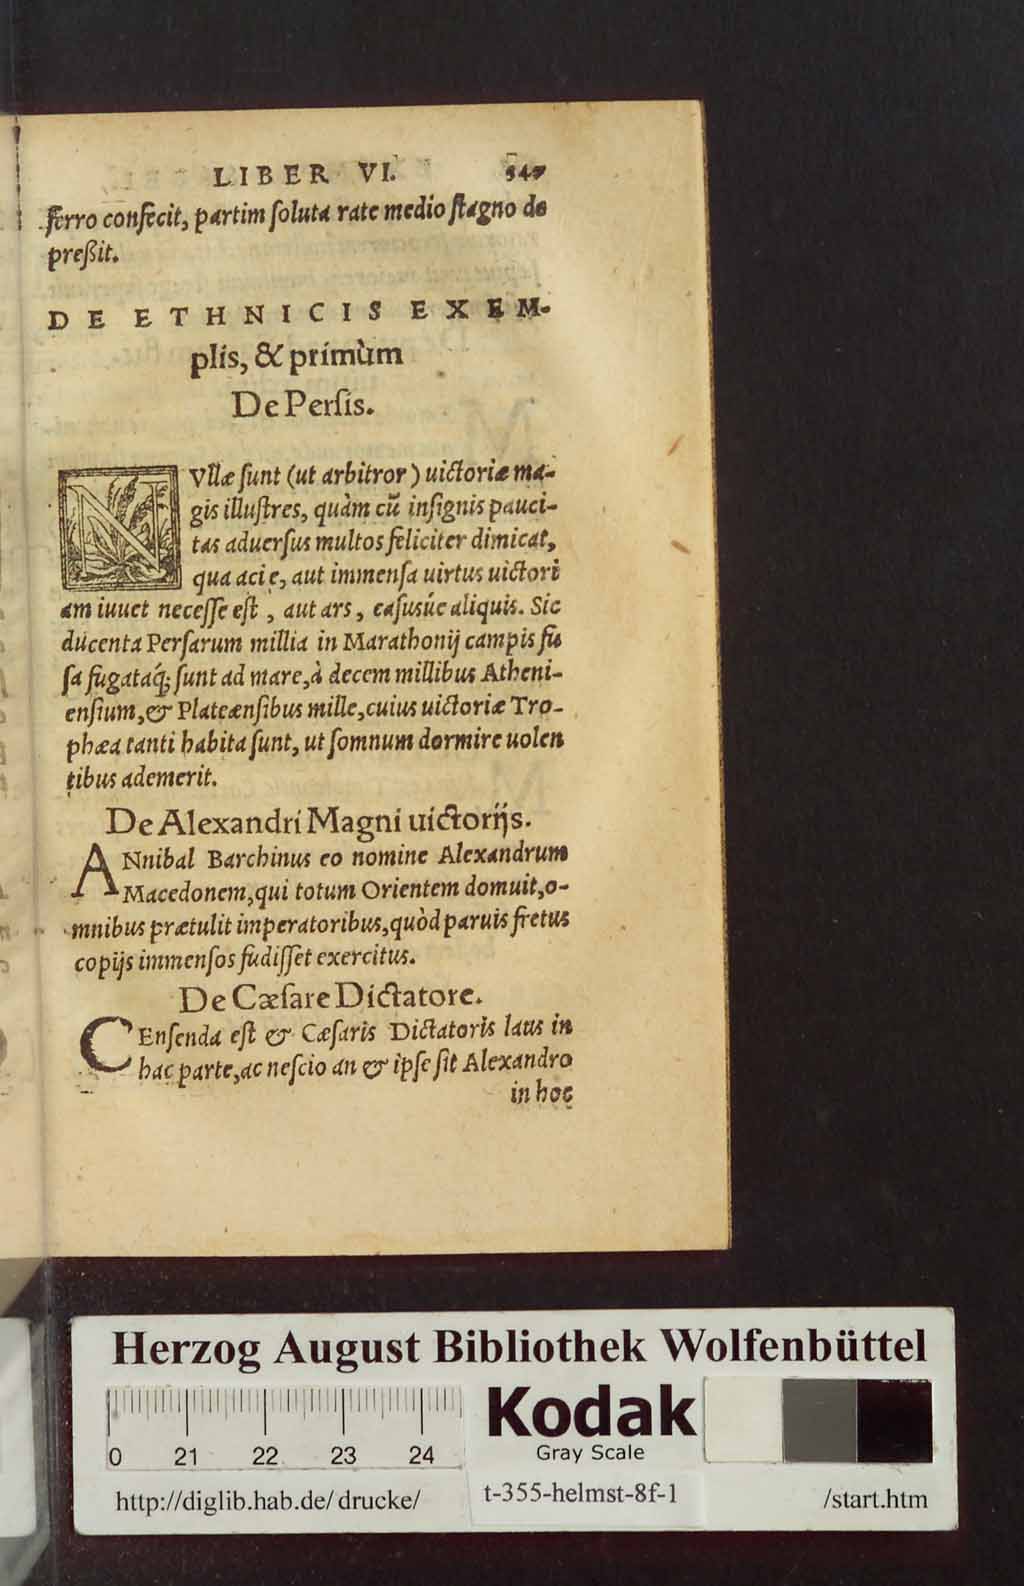 LIBER VI. 347
ferro confecit, partim ſoluta rate medio ſtagno de
preßit.
DE ETHNICIS EXEM-
plis, & primùm
De Perſis.
NVllæ ſunt (ut arbitror) uictoriæ ma-
gis illuſtres, quàm cū inſignis pauci-
tas aduerſus multos feliciter dimicat,
qua acie, aut immenſa uirtus uictori
am iuuet neceſſe eſt, aut ars, caſusúe aliquis. Sic
ducenta Perſarum millia in Marathonij campis fu
ſa fugatáq; ſunt ad mare, à decem millibus Atheni-
enſium, & Platæenſibus mille, cuius uictoriæ Tro-
phæa tanti habita ſunt, ut ſomnum dormire uolen
tibus ademerit.
De Alexandri Magni uictorijs.
ANnibal Barchinus eo nomine Alexandrum
Macedonem, qui totum Orientem domuit, o-
mnibus prætulit imperatoribus, quòd paruis fretus
copijs immenſos fudiſſet exercitus.
De Cæſare Dictatore.
CEnſenda eſt & Cæſaris Dictatoris laus in
hac parte, ac neſcio an & ipſe ſit Alexandro
in hoc
Herzog August Bibliothek Wolfenbüttel
0 21 22 23 24
Kodak
Gray Scale
http://diglib.hab.de/drucke/ t-355-helmst-8f-1 /start.htm